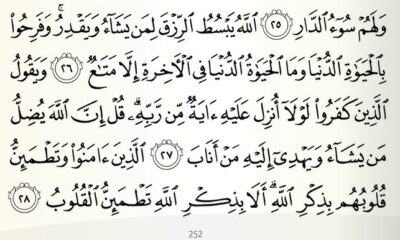 وَلَهُمْ سُوٓءُ ٱلدَّارِ ٢٥ ٱللَّهُ يَبْسُطُ ٱلرِّزْقَ لِمَن يَشَآءُ وَيَقْدِرُ ۚ وَفَرِحُوا۟
بِٱلْحَيَوٰةِ ٱلدُّنْيَا وَمَا ٱلْحَيَوٰةُ ٱلدُّنْيَا فِى ٱلْـَٔاخِرَةِ إِلَّا مَتَـٰعٌ ٢٦ وَيَقُولُ
ٱلَّذِينَ كَفَرُوا۟ لَوْلَآ أُنزِلَ عَلَيْهِ ءَايَةٌ مِّن رَّبِّهِۦ ۗ قُلْ إِنَّ ٱللَّهَ يُضِلُّ
مَن يَشَآءُ وَيَهْدِىٓ إِلَيْهِ مَنْ أَنَابَ ٢٧ ٱلَّذِينَ ءَامَنُوا۟ وَتَطْمَئِنُّ
قُلُوبُهُم بِذِكْرِ ٱللَّهِ ۗ أَلَا بِذِكْرِ ٱللَّهِ تَطْمَئِنُّ ٱلْقُلُوبُ ٢٨
252